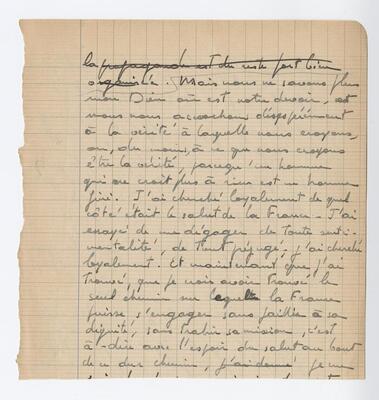 la propagande est du reste fort bien
organisée. Mais nous ne savons plus
mon Dieu où est notre devoir, et
nous nous accrochons désespérément
à la vérité à laquelle nous croyons,
ou, du moins, à ce que nous croyons
être la vérité, parce qu'un homme
qui ne croit plus à rien est un homme
fini. J'ai cherché loyalement de quel
côté était le salut de la France - J'ai
essayé de me dégager de toute senti-
mentalité, de tout préjugé, j'ai cherché
loyalement. Et maintenant que j'ai
trouvé, que je crois avoir trouvé le
seul chemin sur lequel la France
puisse s'engager sans faillir à sa
dignité, sans trahir sa mission, c'est
à-dire avec l'espoir du salut au bout
de ce dur chemin, je me